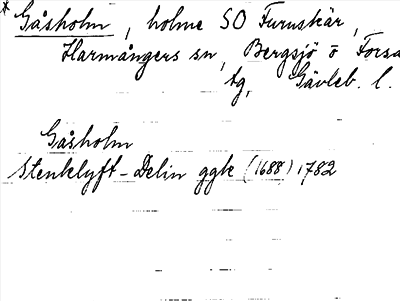 * Gåsholm, holme SO Furuskär,
Harmångers sn, Bergsjö o Forsa
tg, Gävleb. l.
Gåsholm
Stenklyft-Delin ggbe (1688) 1782